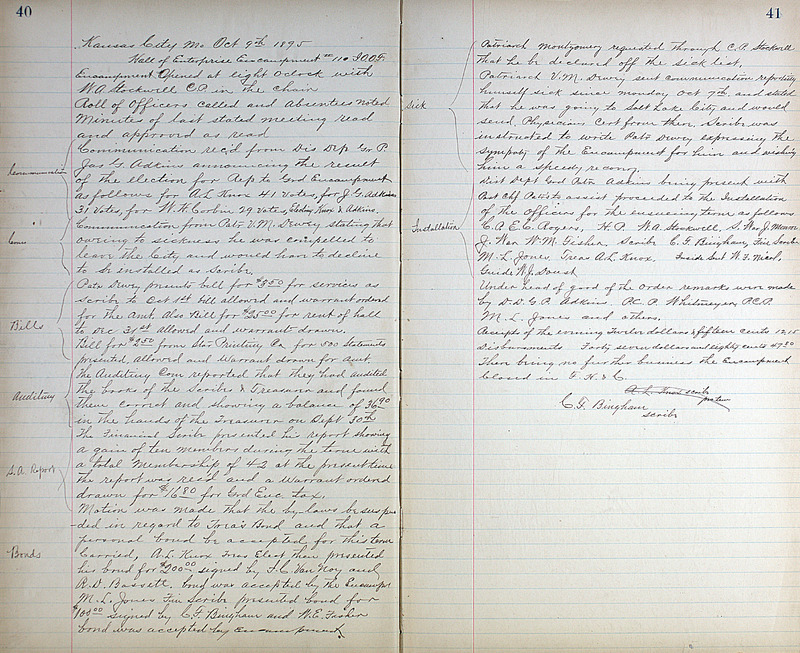 40
Kansas City Mo Oct 9th 1895
Hall of Enterprise Encampment no 110 I.O.O.F.
Encampment Opened at eight Oclock with
W.A. Stockwell C.P. in the chair
Roll of Officers called and Absentees noted
Minutes of last stated meeting read
and approved as read
Communication
Communication rec'd from Dis Dep Gr. P.
Jas. G. Adkins announcing the result
of the election for Rep to Grd Encampment
as follows for A.L. Knox 41 Votes, for J.G. Adkins
31 Votes, for W.H. Corbin 29 Votes, Knox & Adkins.
Communication from Patr V.M. Dewey stating that
owing to sickness he was compelled to
leave the City and would have to decline
to be installed as Scribe.
Bills
Patr Dewey presents bill for $3.50 for services as
scribe to Oct 1st bill allowed and warrant ordered
for the Amt. also Bill for $35.00 for rent of hall
to Dec 31st allowed and warrant drawn.
Bill for $2.50 from Star Printing Co for 500 Statements
presented, allowed and Warrant drawn for Amt
Auditing
The Auditing Com reported that they had audited
the books of the Scribe & Treasurer and found
them correct and showing a balance of 36.90
in the hands of the Treasurer on Sept 30th
S.A. Report
The Financial Scribe presented his report showing
a gain of ten members during the term with
a total Membership of 42 at the present time
the report was rec'd and a Warrant ordered
drawn for $16.80 for Grd Enc. tax.
Bonds
Motion was made that the by-laws be suspen
ded in regard to Treas Bond and that a
personal bond be accepted for this term
Carried, A.L. Knox Treas Elect then presented
his bond for $200.00 signed by F.C. Van Noy and
R.D. Bassett. bond was accepted by the Encampt
M.L. Jones Fin Scribe presented bond for
$100.00 signed by C.F. Bingham and W.E. Fisher
bond was accepted by encampment
41
Sick
Patriarch Montgomery requested through C.P. Stockwell
that he be declared off the sick list.
Patriarch V.M. Dewey sent communication reporting
himself sick since monday Oct 7th and stated
that he was going to Salt Lake City and would
send Physicians Cert from there. Scribe was
instructed to write Patr Dewey expressing the
sympathy of the Encampment for him and wishing
him a speedy recovery.
Installation
Dist Dept Grd Patr Adkins being present with
Past Chf Patrs to assist proceeded to the Installation
of the Officers for the ensueing term as follows
C.P. E.C. Rogers, H.P. W.A. Stockwell, S. War J. Monroe
J. War W.M. Fisher, Scribe C.F. Bingham, Fin Scribe
M.L. Jones, Treas A.L. Knox. Inside Sent W.F.
Guide W.J. Doust
Under head of good of the Order remarks were made
by D.D.G.P. Adkins P.C.P. Whitmeyer, P.C.P.
M.L. Jones and others.
Receipts of the evening Twelve dollars & fifteen cents 12.15
Disbursments Forty seven dollars and eighty cents 47.80
There being no further business the Encampment
Closed in F. H. & C.
A.L. Knox scribe
pro tem
C.F. Bingham
scribe